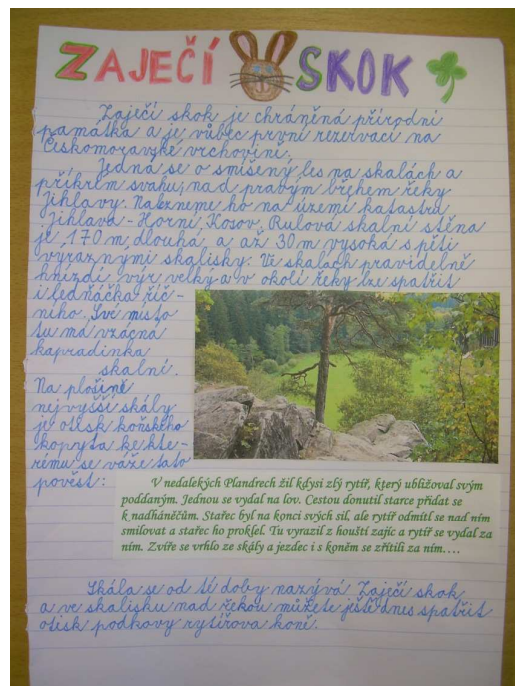 ZAJEČÍ SKOK
Zaječí skok je chráněná přírodní
památka a je vůbec první rezervací na
Českomoravské vrchovině.
Jedná se o smíšený les na skalách a
příkrém svahu, nad pravým břehem řeky
Jihlavy. Nalezneme ho na území katastru
Jihlava - Horní Kosov. Rulová skalní stěna
je 170 m dlouhá a až 30 m vysoká s pěti
výraznými skalisky. Ve skalách pravidelně
hnízdí výr velký a v okolí řeky lze spatřit
i ledňáčka říč-
ního. Své místo
tu má vzácná
kapradinka
skalní.
Na plošině
nejvyšší skály
je otisk koňského
kopyta ke kte-
rému se váže tato
pověst:
V nedalekých Plandrech žil kdysi zlý rytíř, který ubližoval svým
poddaným. Jednou se vydal na lov. Cestou donutil starce přidat se
k nadháněčům. Stařec byl na konci svých sil, ale rytíř odmítl se nad ním
smilovat a stařec ho proklel. Tu vyrazil z houští zajíc a rytíř se vydal za
ním. Zvíře se vrhlo ze skály a jezdec i s koněm se zřítili za ním....
Skála se od té doby nazývá Zaječí skok
a ve skalisku nad řekou můžete ještě dnes spatřit
otisk podkovy rytířova koně.